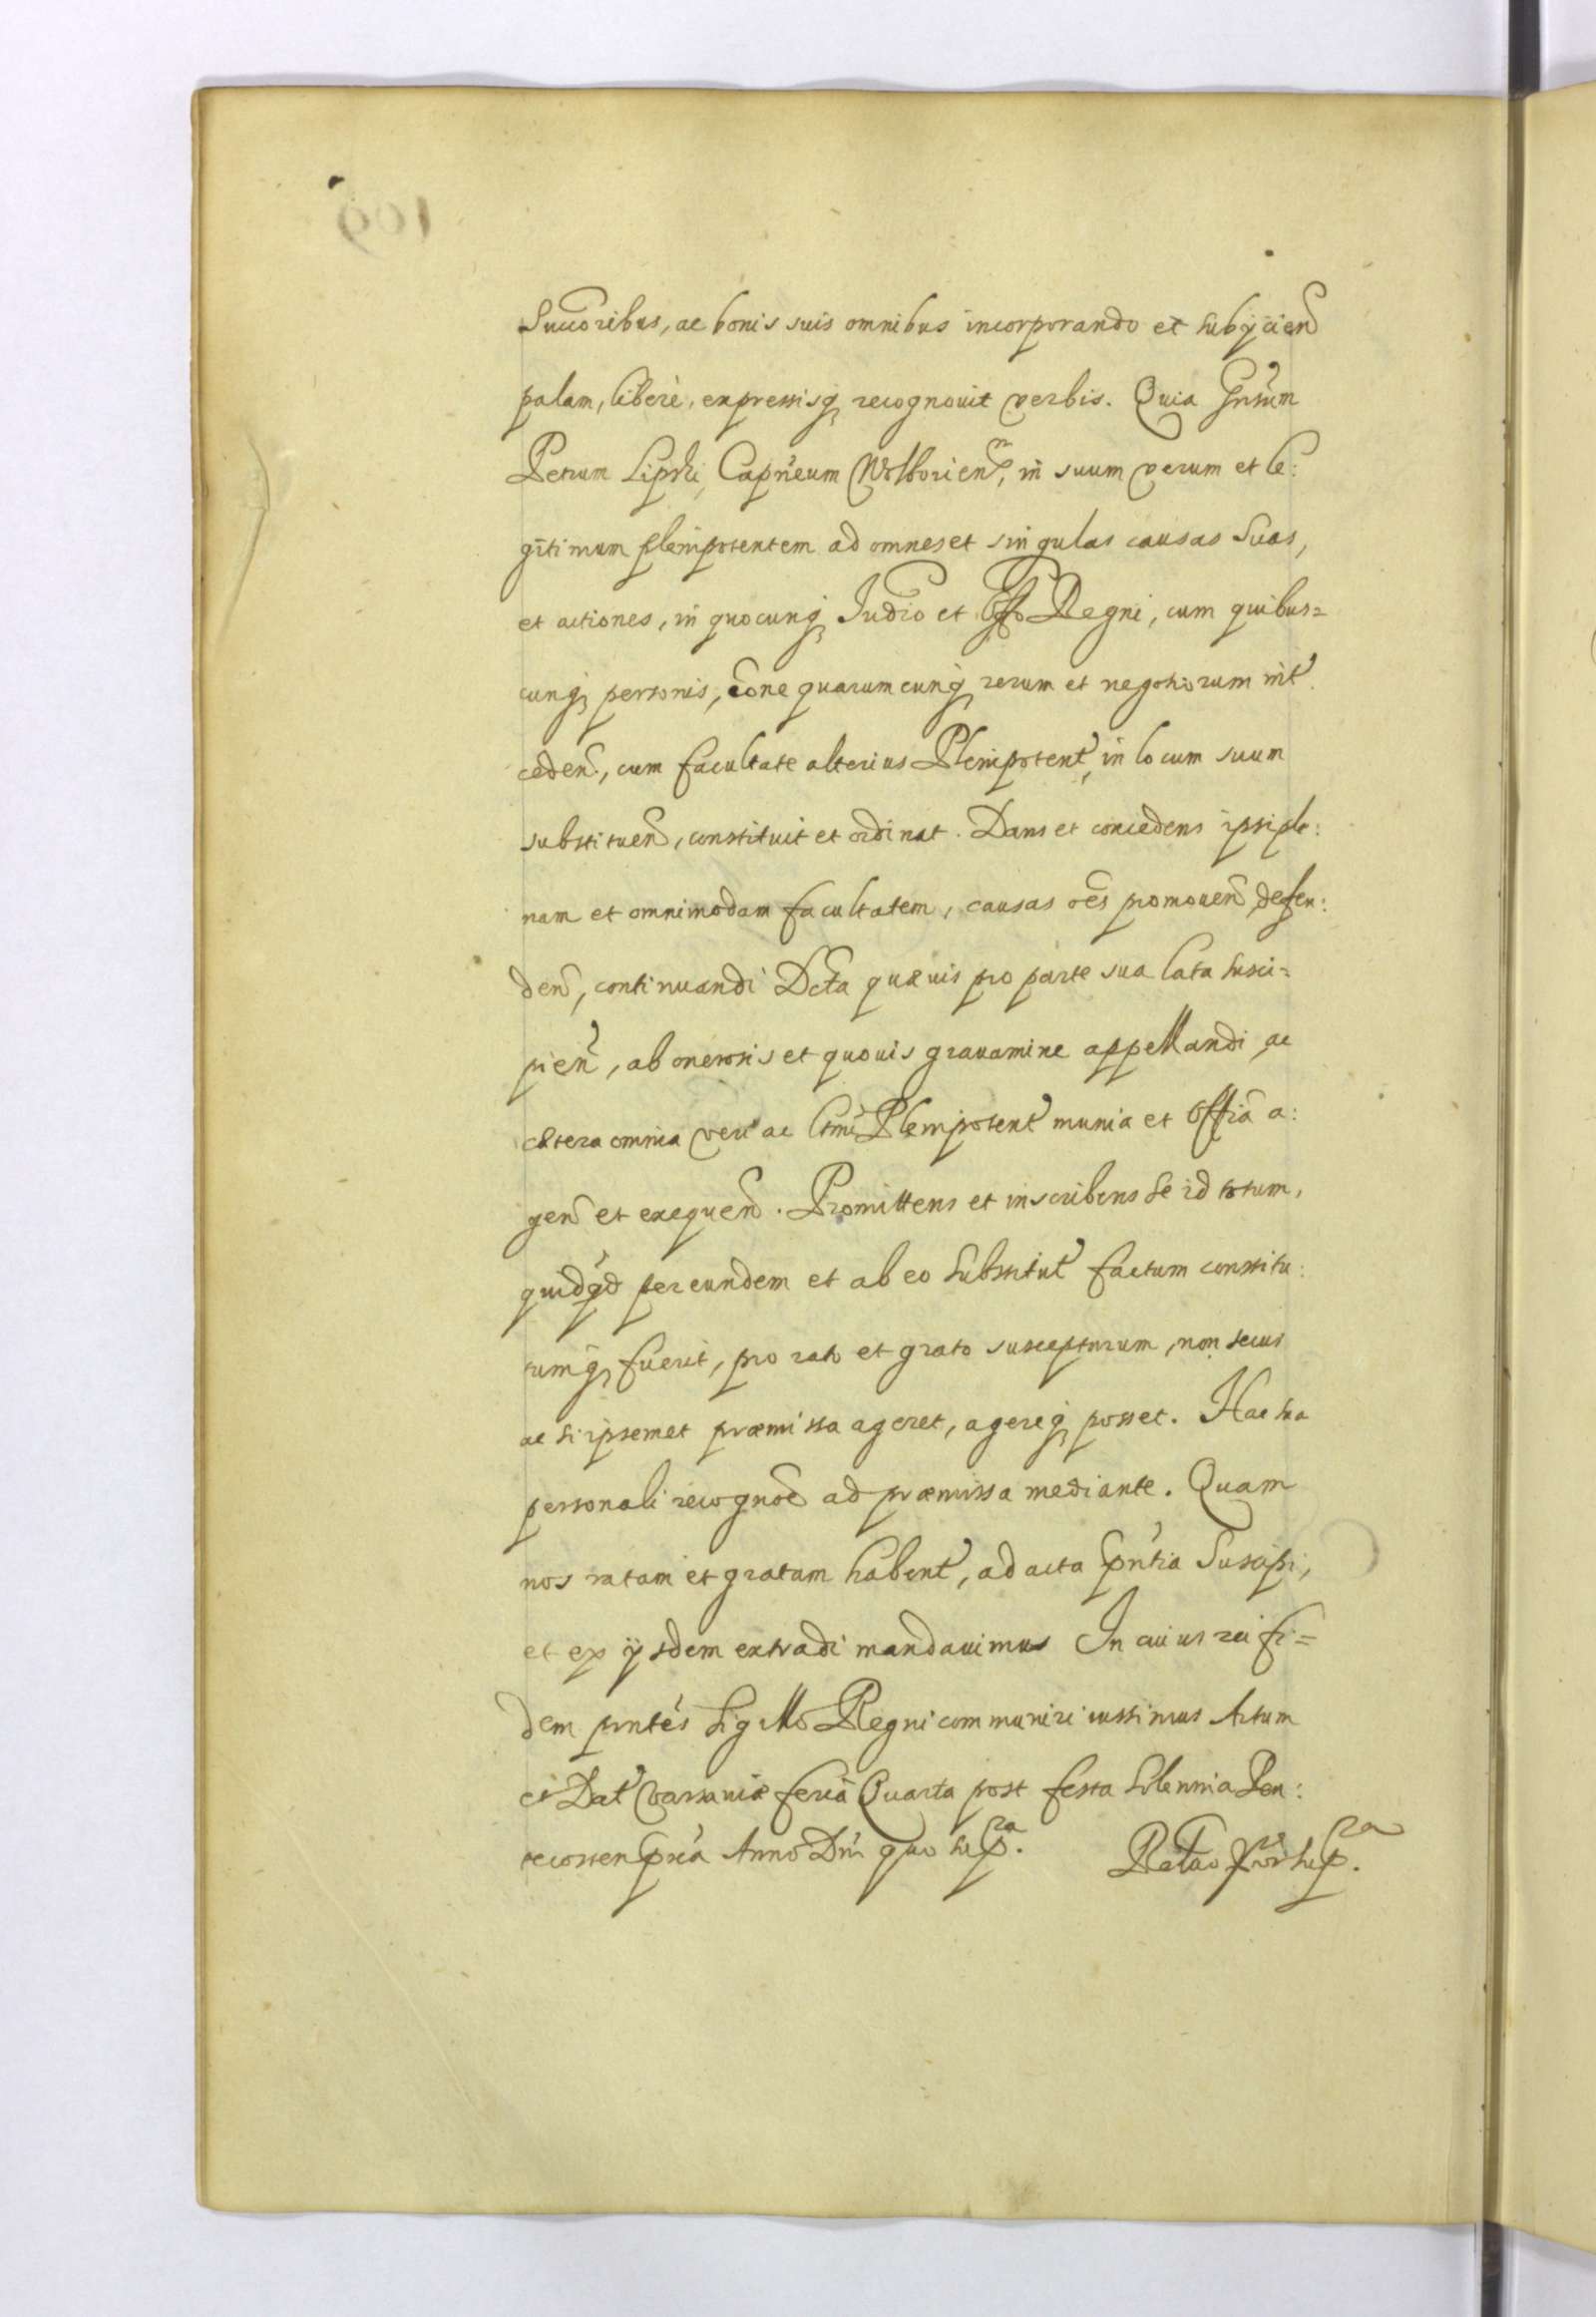 Succoribus, ac bonis suis omnibus incorporando et subijcien
palam, liberè, expressisq recognouit verbis. Quia Gnrum
Petrum Lipski, Capneum Wolborien, in suum verum et le:
gitimum plenipotentem ad omnes et singulas causas suas,
et actiones, in quocunq Judio et Offo Regni, cum quibus=
cunq personis, cone quarumcunq rerum et negotiorum int
ceden., cum facultate alterius Plenipotent, in locum suum
substituen, constituit et ordinat. Dans et concedens ipsi ple:
nam et omnimodam facultatem, causas oes promouen, defen:
den, continuandi Dcta quæuis pro parte sua lata susci=
pien, ab onerosis et quouis grauamine appellandi, ac
cætera omnia veri ac ltmi Plenipotent munia et offia a:
gen et exequen. Promittens et inscribens se id totum,
quidqd per eundem et ab eo substitut factum constitu:
tumq fuerit, pro rato et grato suscepturum, non secus
ac si ipsemet præmissa ageret, agereq posset. Hac sua
personali recognoe ad præmissa mediante. Quam
nos ratam et gratam habent, ad acta pntia suscipi,
et ex ijsdem extradi mandauimus In cuius rei fi=
dem pntes Sigillo Regni communiri iussimus Actum
et Dat Varsauiæ feria Quarta post festa solennia Pen:
tecosten pxia Anno Dni quo sup ra.
Retao pror sup ra.
109